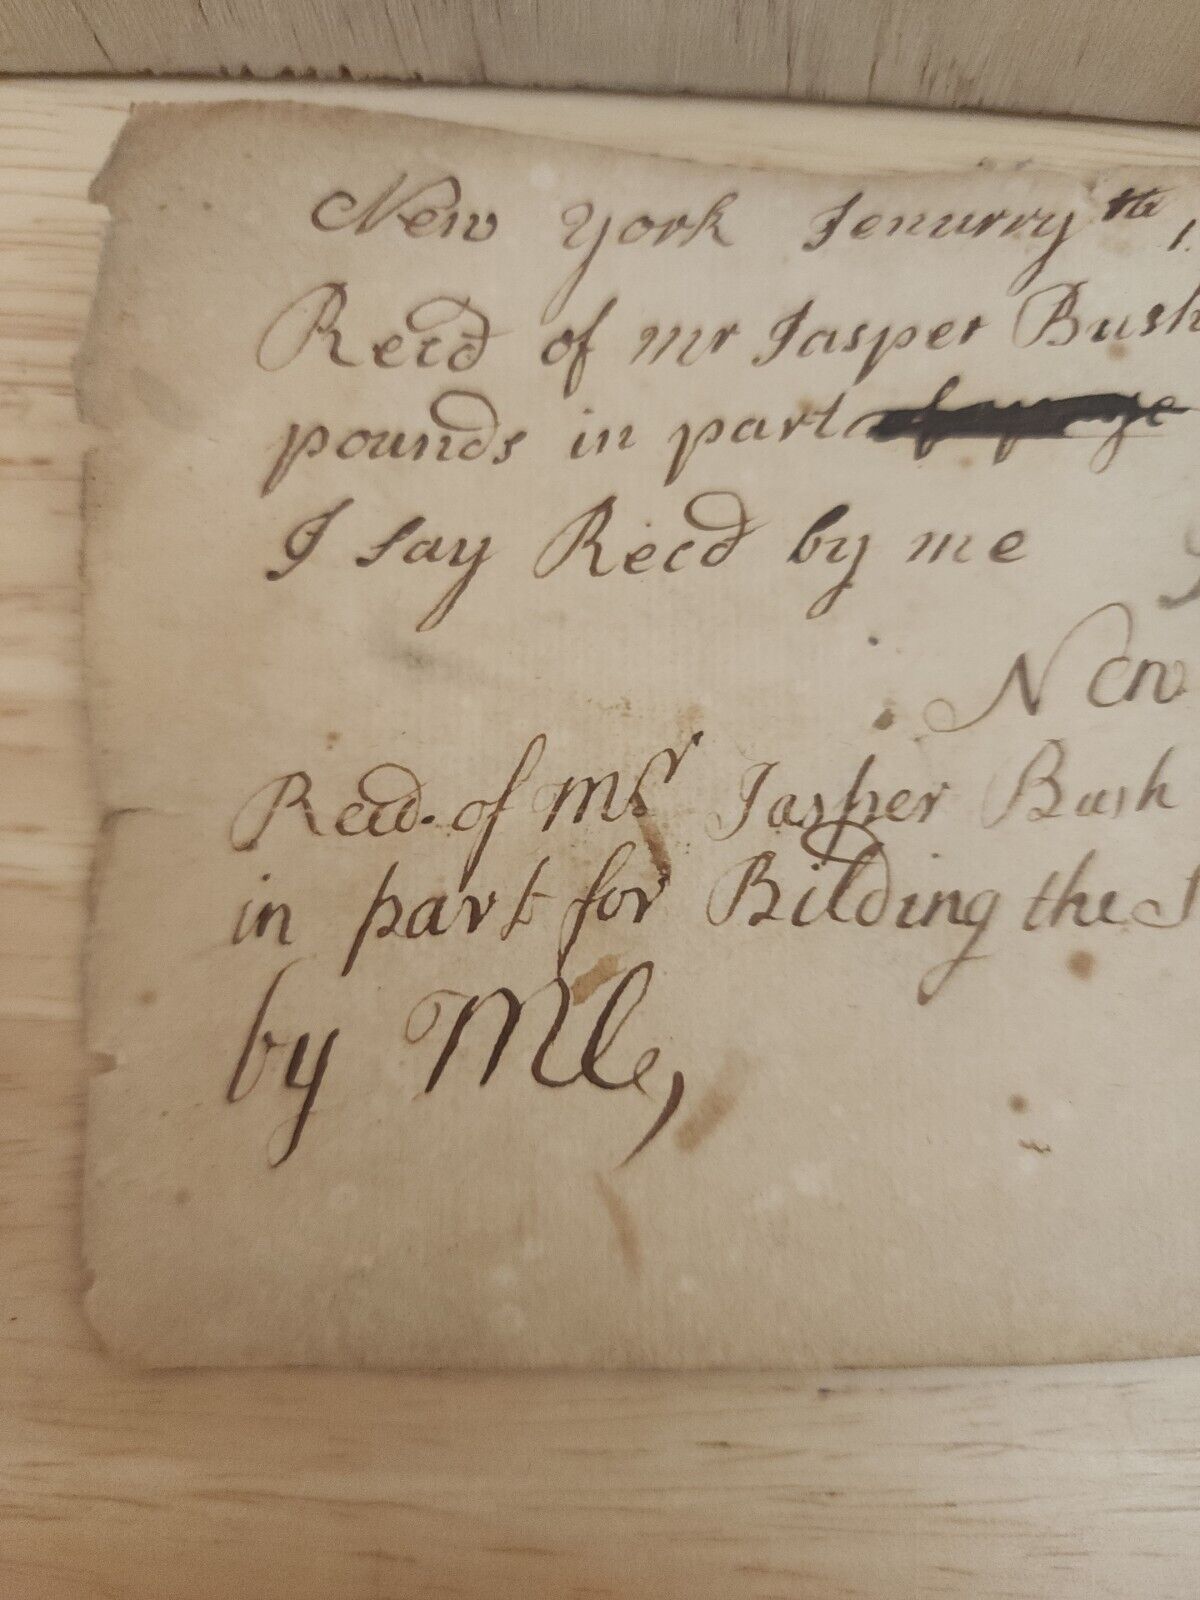 New York Jenurry th 1
Recd of mr Jasper Bush
pounds in part
I say Recd by me
New
Recd. of Mr Jasper Bush
in part for Bilding the S
by Me,